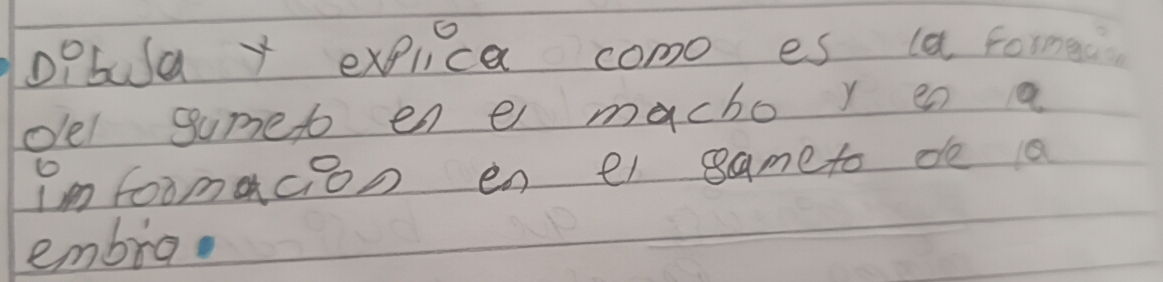 Dibuja y explica como es la formacion
del gumeto en el macho y en a
imformación en el gameto de la
embra.